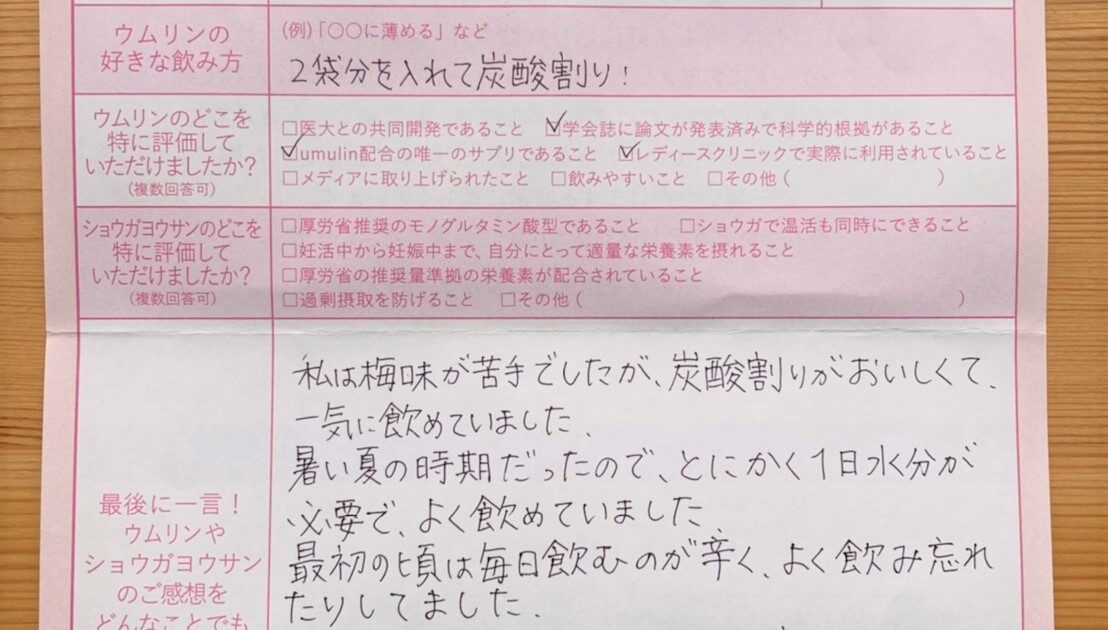 ウムリンの
好きな飲み方
(例)「〇〇に薄める」など
2袋分を入れて炭酸割り!
ウムリンのどこを
特に評価して
いただけましたか?
(複数回答可)
□医大との共同開発であること ☑学会誌に論文が発表済みで科学的根拠があること
☑umulin配合の唯一のサプリであること ☑レディースクリニックで実際に利用されていること
□メディアに取り上げられたこと □飲みやすいこと □その他( )
ショウガヨウサンのどこを
特に評価して
いただけましたか?
(複数回答可)
□厚労省推奨のモノグルタミン酸型であること □ショウガで温活も同時にできること
□妊活中から妊娠中まで、自分にとって適量な栄養素を摂れること
□厚労省の推奨量準拠の栄養素が配合されていること
□過剰摂取を防げること □その他( )
最後に一言!
ウムリンや
ショウガヨウサン
のご感想を
どんなことでも
私は梅味が苦手でしたが、炭酸割りがおいしくて、
一気に飲めていました、
暑い夏の時期だったので、とにかく1日水分が
必要で、よく飲めていました、
最初の頃は毎日飲むのが辛く、よく飲み忘れ
たりしてました、